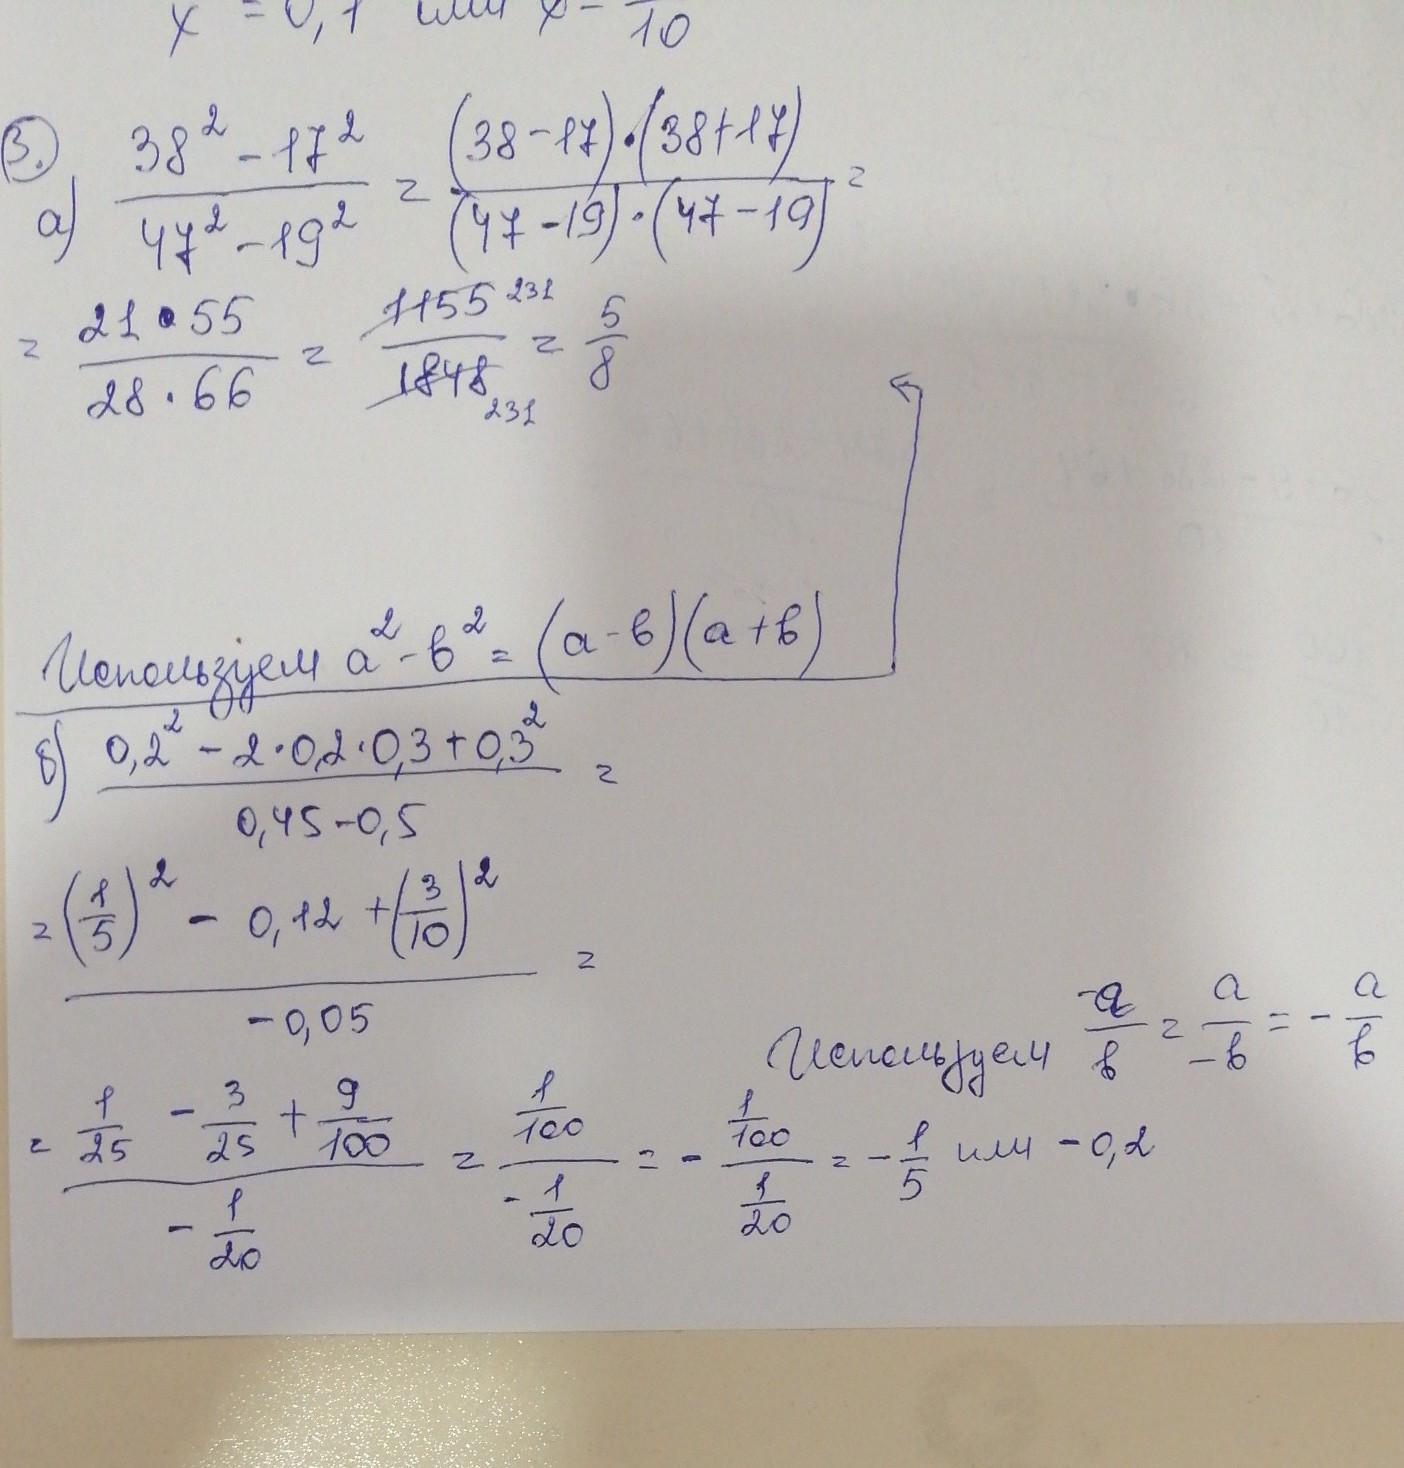 x = 0,1 или x = /10
3.
а) (38² - 17²)/(47² - 19²) = ((38-17)·(38+17))/((47-19)·(47-19)) =
= (21·55)/(28·66) = 1155 231/1848 231 = 5/8
Используем a² - b² = (a-b)(a+b)
б) (0,2² - 2·0,2·0,3 + 0,3²)/(0,45-0,5) =
= ((1/5)² - 0,12 + (3/10)²)/(-0,05) =
Используем -a/b = a/-b = - a/b
= (1/25 - 3/25 + 9/100)/(- 1/20) = (1/100)/(- 1/20) = - (1/100)/(1/20) = - 1/5 или -0,2